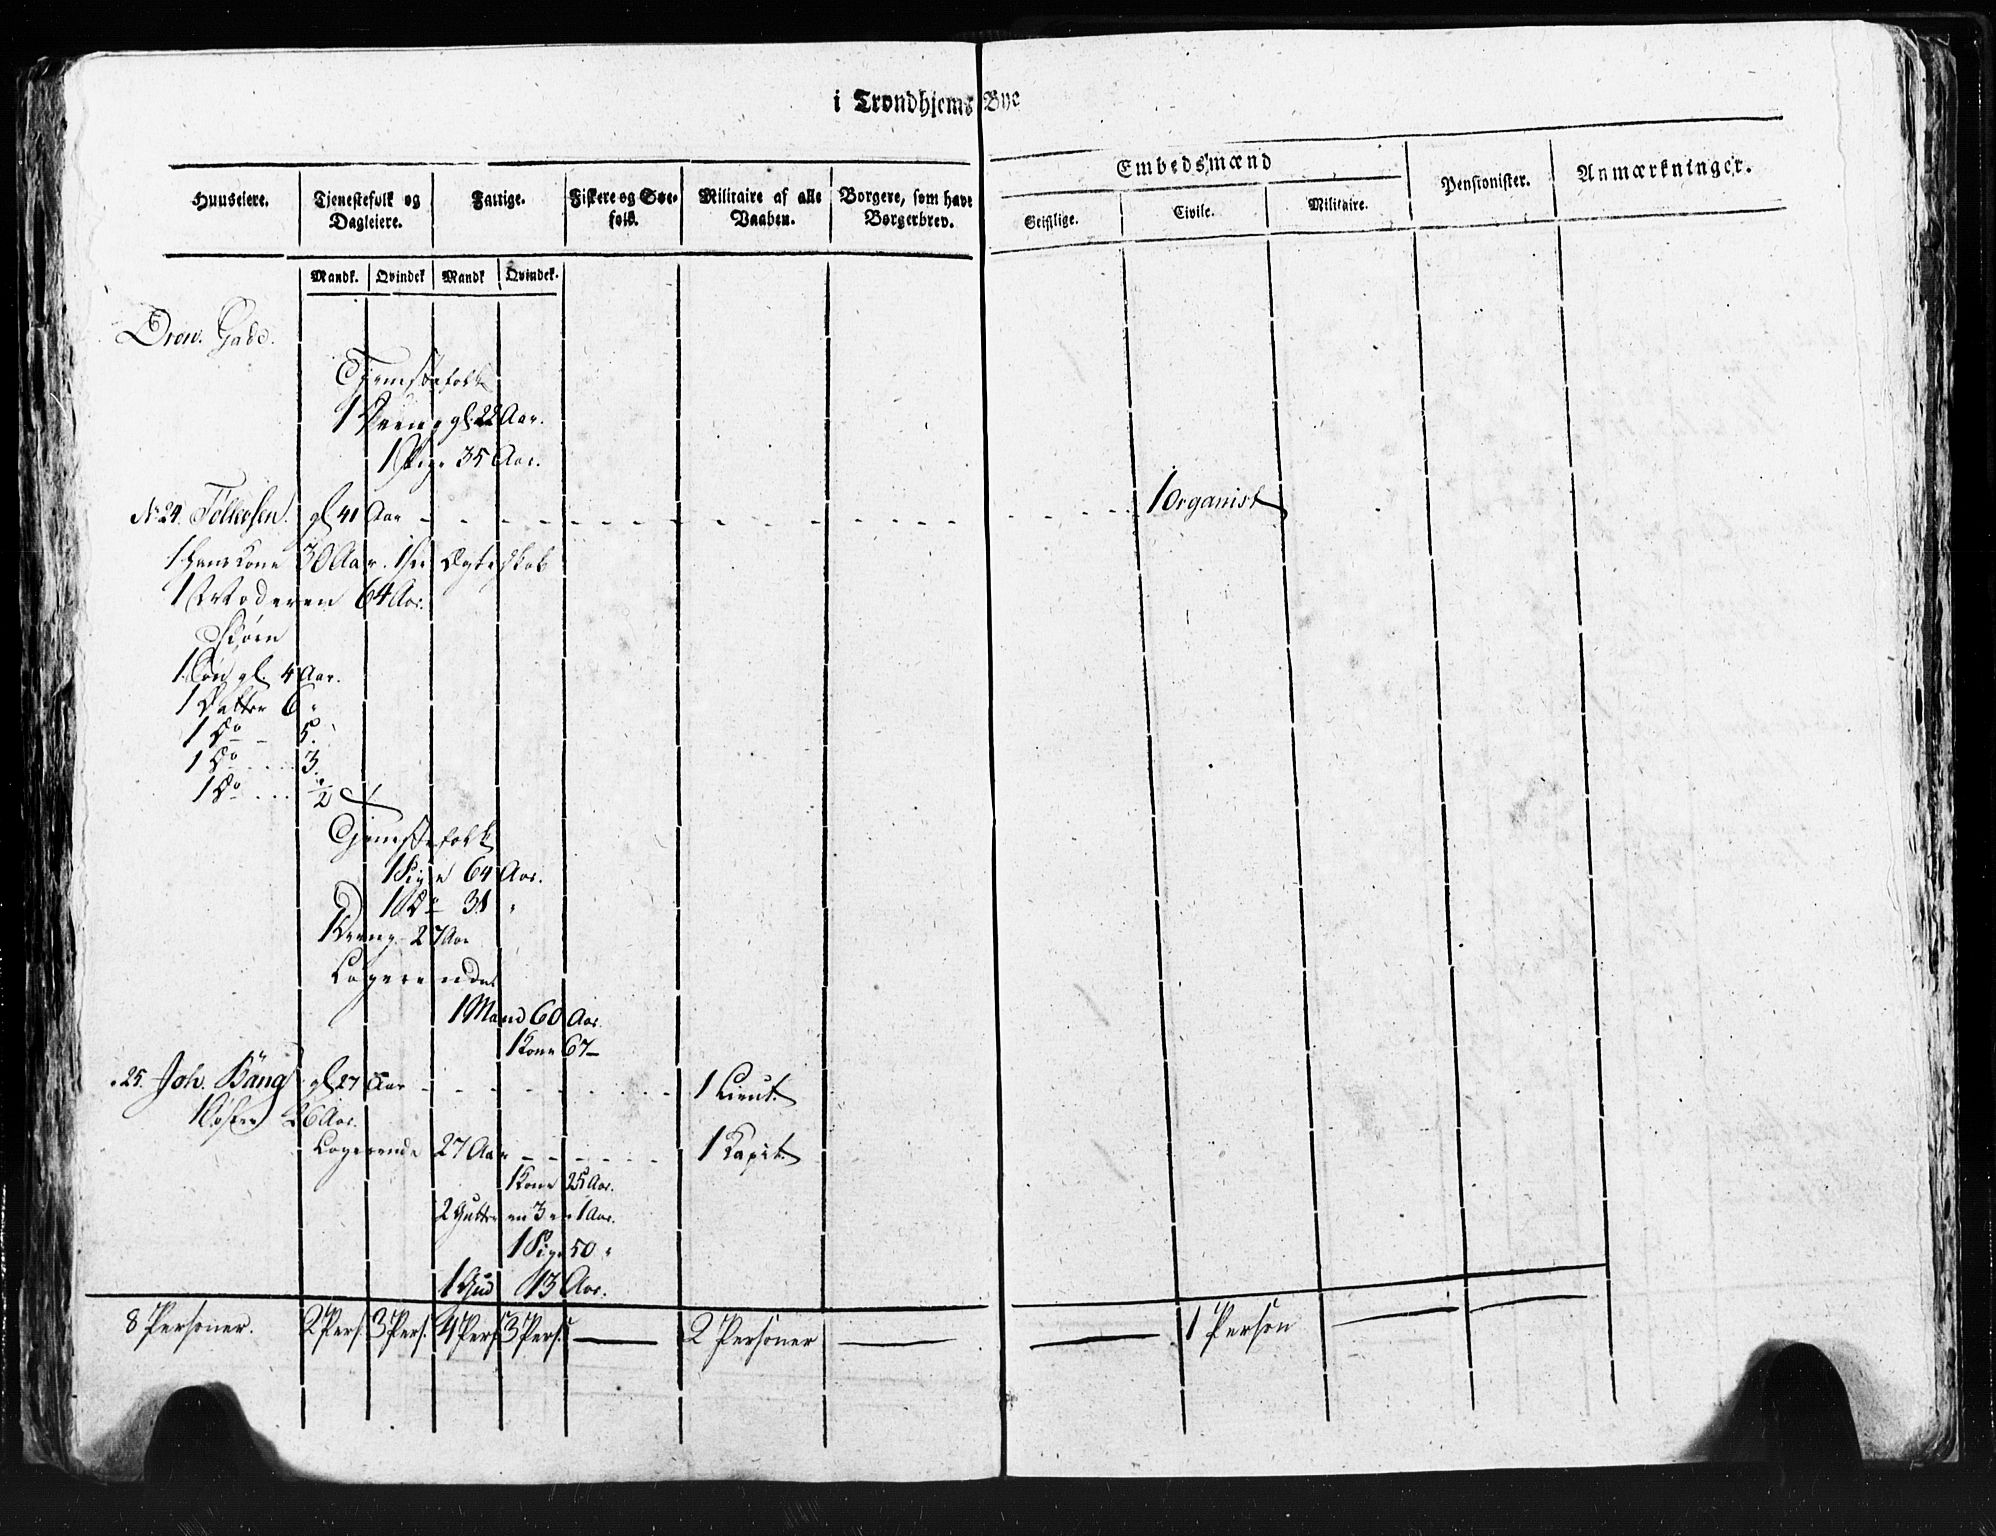 i Trondhjems Bye
Huuseiere.
Tjenestefolk og Dagleiere.
Fattige.
Fiskere og Søefolk.
Militaire af alle Vaaben.
Borgere, som have Borgerbrev.
Embedsmænd
Geistlige.
Civile.
Militaire.
Pensionister.
Anmærkninger.
Mandk. Qvindek Mandk Qvindek.
Gade.
Tjenestefolk
1 Dreng gl. 22 Aar.
1 Pige 35 Aar.
No 24. Tellefsen. gl 41 Aar - - - 1 Organist
1 hans Kone 30 Aar. 1ste Ægteskab
1 Moderen 64 Aar.
Børn
1 Søn gl. 4 Aar.
1 Datter 6 "
1 Do - 5.
1 Do .... 3.
1 Do .... 1/2
Tjenestefolk
1 Pige 64 Aar.
1 Do 31 "
1 Dreng 27 Aar
Logerende
1 Mand 60 Aar.
1 Kone 67 -
" 25. Joh. Bång gl 27 Aar - - - 1 Lieut.
1 Søster 26 Aar.
Logerende 27 Aar - - - 1 Kapit.
1 Kone 25 Aar.
2 Gutter en 3 en 1 Aar.
1 Pige 50 "
1 Gud 13 Aar.
8 Personer. 2 Pers. 3 Pers. 4 Pers. 3 Pers. — 2 Personer — — 1 Person — —